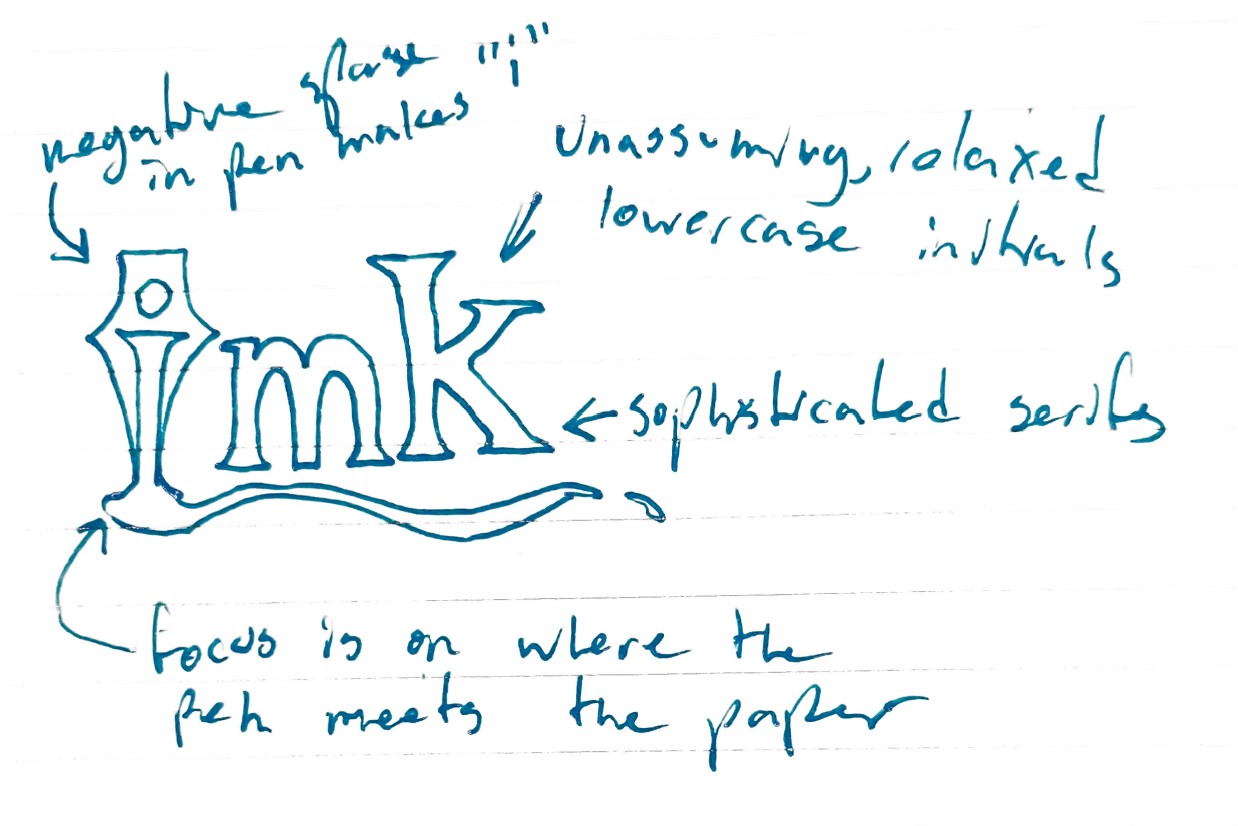 negative space "i"
in pen makes
Unassuming, relaxed
lowercase initials
mk
← sophisticated serifs
focus is on where the
pen meets the paper